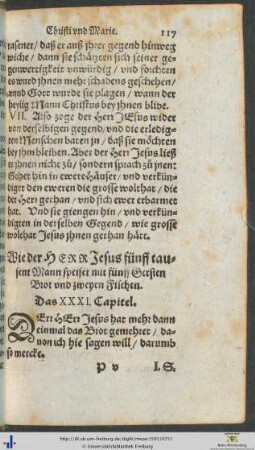 Christi vnd Marie. 117
rasener/ daß er auß jhrer gegend hinweg
wiche/ dann sie schätzten sich seiner ge-
genwertigkeit vnwürdig/ vnd förchten
es wurd jhnen mehr schadens geschehen/
vnnd Gott wurde sie plagen/ wann der
heylig Mann Christus bey jhnen blibe.
VII. Also zoge der Herr JEsus wider
von derselbigen gegend/ vnd die erledig-
ten Menschen baten jn/ daß sie möchten
bey jhm bleiben. Aber der Herr Jesus ließ
es jhnen nicht zu/ sondern sprach zu jnen:
Gehet hin in ewere Häuser/ vnd verkün-
diget den eweren die grosse wolthat/ die
der Herr gethan/ vnd sich ewer erbarmet
hat. Vnd sie giengen hin/ vnd verkün-
digten in derselben Gegend/ wie grosse
wolthat Jesus jhnen gethan hätt.
Wie der HERR Jesus fünff tau-
sent Mann speiset mit fünff Gersten
Brot vnd zweyen Fischen.
Das XXXI. Capitel.
DErr HErr Jesus hat mehr dann
einmal das Brot gemehret/ da-
uon ich hie sagen will/ darumb
so mercke.
P v I. S.
© Universitätsbibliothek Freiburg